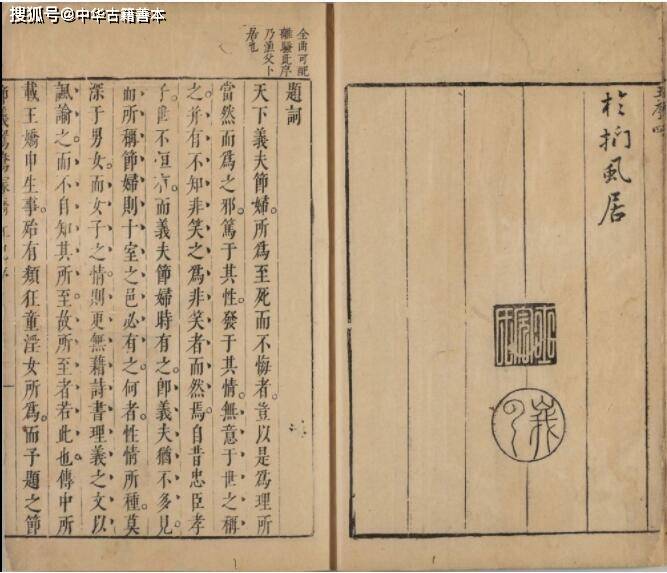 搜狐号@中华古籍善本
於捫風居
全曲可配
離騷此序
乃漁父卜
居也
題詞
天下義夫節婦。所爲至死而不悔者。豈以是爲理所
當然而爲之邪。篤于其性。發于其情。無意于世之稱
之。并有不知非笑之爲非笑者而然焉。自昔忠臣孝
子。不恒有。而義夫節婦時有之。卽義夫猶不多見
而所稱節婦則十室之邑必有之。何者。性情所種。莫
深于男女。而女子之情。則更無藉詩書理義之文以
諷諭之。而不自知其所至。故所至者若此也。傳中所
載王嬌申生事。殆有類狂童淫女所爲。而予題之節